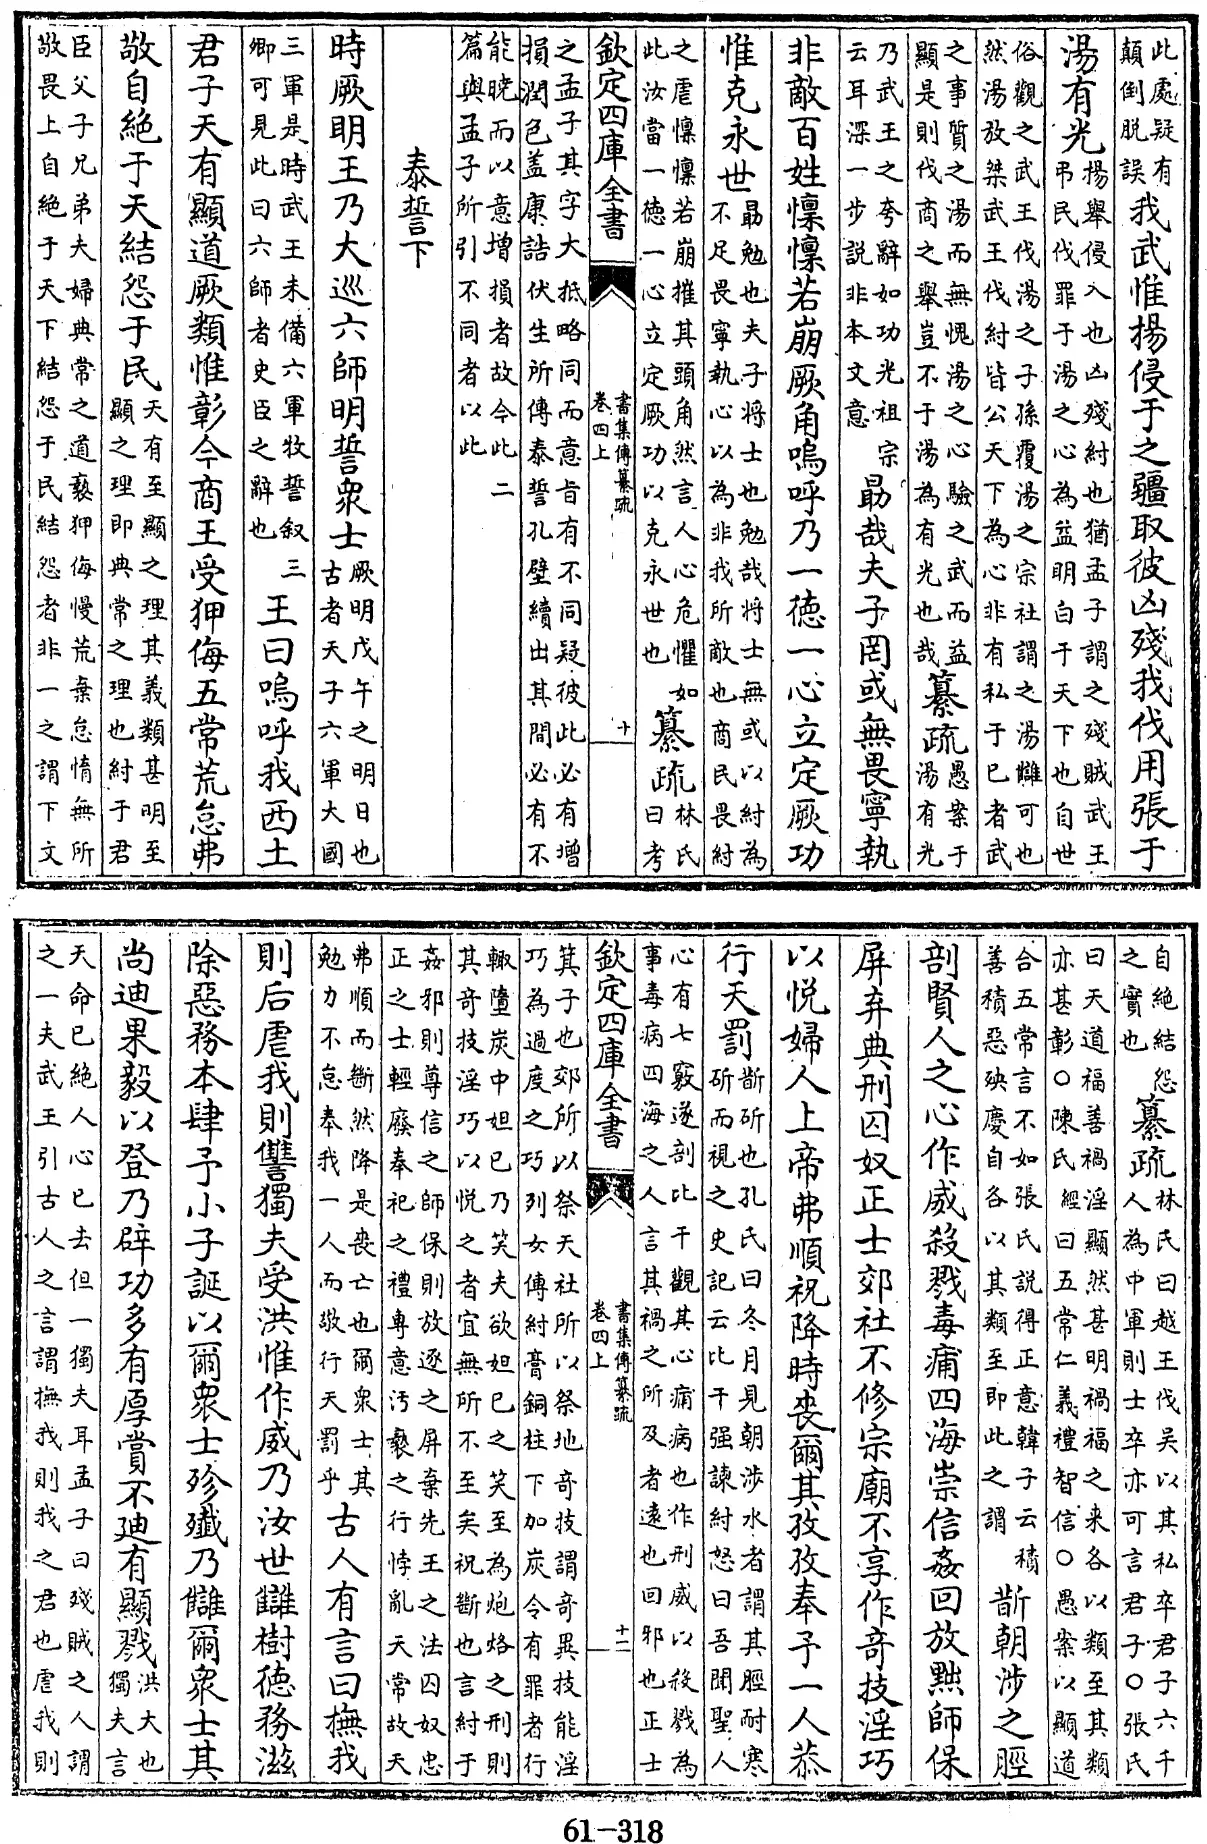 此處疑有顛倒脱誤我武惟揚侵于之疆取彼凶殘我伐用張于
湯有光揚舉侵入也凶殘紂也猶孟子謂之殘賊武王弔民伐罪于湯之心為益明白于天下也自世
俗觀之武王伐湯之子孫覆湯之宗社謂之湯讎可也然湯放桀武王伐紂皆公天下為心非有私于已者武
之事質之湯而無愧湯之心驗之武而益顯是則伐商之舉豈不于湯為有光也哉纂疏愚案于湯有光
乃武王之夸辭如功光祖宗云耳深一步説非本文意勗哉夫子罔或無畏寧執
非敵百姓懍懍若崩厥角嗚呼乃一德一心立定厥功
惟克永世勗勉也夫子将士也勉哉将士無或以紂為不足畏寧執心以為非我所敵也商民畏紂
之虐懍懍若崩摧其頭角然言人心危懼如此汝當一德一心立定厥功以克永世也纂疏林氏曰考
欽定四庫全書 書集傳纂疏 卷四上 十
之孟子其字大抵略同而意旨有不同疑彼此必有增損潤色盖康誥伏生所傳泰誓孔壁續出其間必有不
能曉而以意增損者故今此二篇與孟子所引不同者以此
泰誓下
時厥明王乃大巡六師明誓衆士厥明戊午之明日也古者天子六軍大國
三軍是時武王未備六軍牧誓叙三卿可見此曰六師者史臣之辭也王曰嗚呼我西土
君子天有顯道厥類惟彰今商王受狎侮五常荒怠弗
敬自絶于天結怨于民天有至顯之理其義類甚明至顯之理即典常之理也紂于君
臣父子兄弟夫婦典常之道褻狎侮慢荒棄怠惰無所敬畏上自絶于天下結怨于民結怨者非一之謂下文
自絶結怨之實也纂疏林氏曰越王伐吳以其私卒君子六千人為中軍則士卒亦可言君子○張氏
曰天道福善禍淫顯然甚明禍福之来各以類至其類亦甚彰○陳氏經曰五常仁義禮智信○愚案以顯道
合五常言不如張氏説得正意韓子云積善積惡殃慶自各以其類至即此之謂斮朝涉之脛
剖賢人之心作威殺戮毒痡四海崇信姦回放黜師保
屏弃典刑囚奴正士郊社不修宗廟不享作奇技淫巧
以悦婦人上帝弗順祝降時喪爾其孜孜奉予一人恭
行天罰斮斫也孔氏曰冬月見朝涉水者謂其脛耐寒斫而視之史記云比干强諫紂怒曰吾聞聖人
心有七竅遂剖比干觀其心痡病也作刑威以殺戮為事毒病四海之人言其禍之所及者遠也回邪也正士
欽定四庫全書 書集傳纂疏 卷四上 十一
箕子也郊所以祭天社所以祭地奇技謂奇異技能淫巧為過度之巧列女傳紂膏銅柱下加炭令有罪者行
輙墮炭中妲已乃笑夫欲妲已之笑至為炮烙之刑則其奇技淫巧以悦之者宜無所不至矣祝斷也言紂于
姦邪則尊信之師保則放逐之屏棄先王之法囚奴忠正之士輕廢奉祀之禮專意汚褻之行悖亂天常故天
弗順而斷然降是喪亡也爾衆士其勉力不怠奉我一人而敬行天罰乎古人有言曰撫我
則后虐我則讐獨夫受洪惟作威乃汝世讎樹德務滋
除惡務本肆予小子誕以爾衆士殄殲乃讎爾衆士其
尚迪果毅以登乃辟功多有厚賞不廸有顯戮洪大也獨夫言
天命已絶人心已去但一獨夫耳孟子曰殘賊之人謂之一夫武王引古人之言謂撫我則我之君也虐我則
61-318